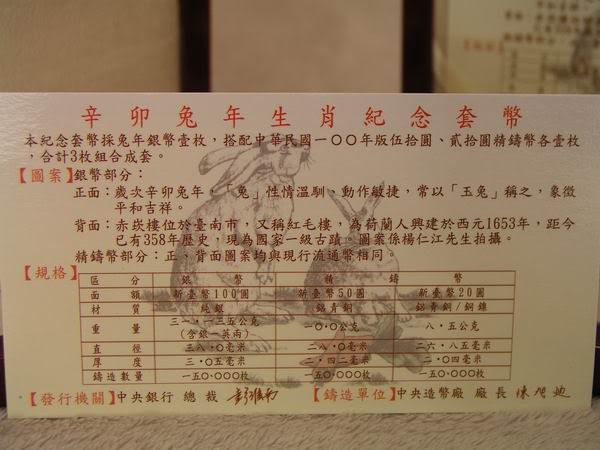 辛卯兔年生肖紀念套幣
本紀念套幣採兔年銀幣壹枚，搭配中華民國一○○年版伍拾圓、貳拾圓精鑄幣各壹枚
，合計3枚組合成套。
【圖案】銀幣部分：
正面：歲次辛卯兔年，「兔」性情溫馴、動作敏捷，常以「玉兔」稱之，象徵
平和吉祥。
背面：赤崁樓位於臺南市，又稱紅毛樓，為荷蘭人興建於西元1653年，距今
已有358年歷史，現為國家一級古蹟。圖案係楊仁江先生拍攝。
精鑄幣部分：正、背面圖案均與現行流通幣相同。
【規格】
區分 銀幣 精鑄幣
面額 新臺幣100圓 新臺幣50圓 新臺幣20圓
材質 純銀 鋁青銅 鋁青銅/銅鎳
重量 三一‧一三五公克 一○‧○公克 八‧五公克
(含銀一英兩)
直徑 三八‧○毫米 二八‧○毫米 二六‧八五毫米
厚度 三‧○五毫米 二‧四二毫米 二‧○四毫米
鑄造數量 一五○‧○○○枚 一五○‧○○○枚 一五○‧○○○枚
【發行機關】中央銀行 總裁 彭淮南 【鑄造單位】中央造幣廠 廠長